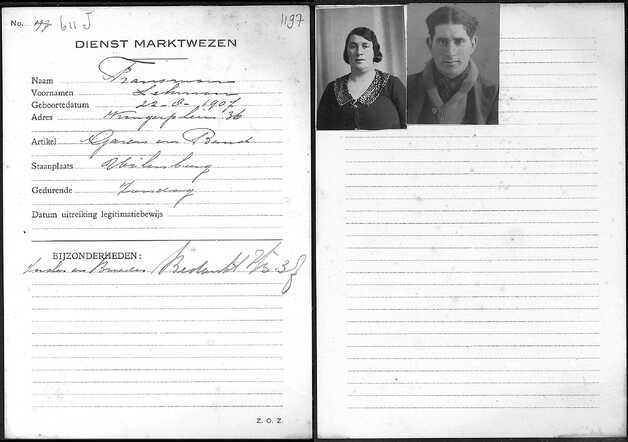 No. 47 611 J 1197
DIENST MARKTWEZEN
Naam Fransman
Voornamen Lehman
Geboortedatum 22-8-1907
Adres 36
Artikel Garen en Band
Staanplaats Uilenburg
Gedurende Zondag
Datum uitreiking legitimatiebewijs
BIJZONDERHEDEN:
en Bedankt
Z. O. Z.